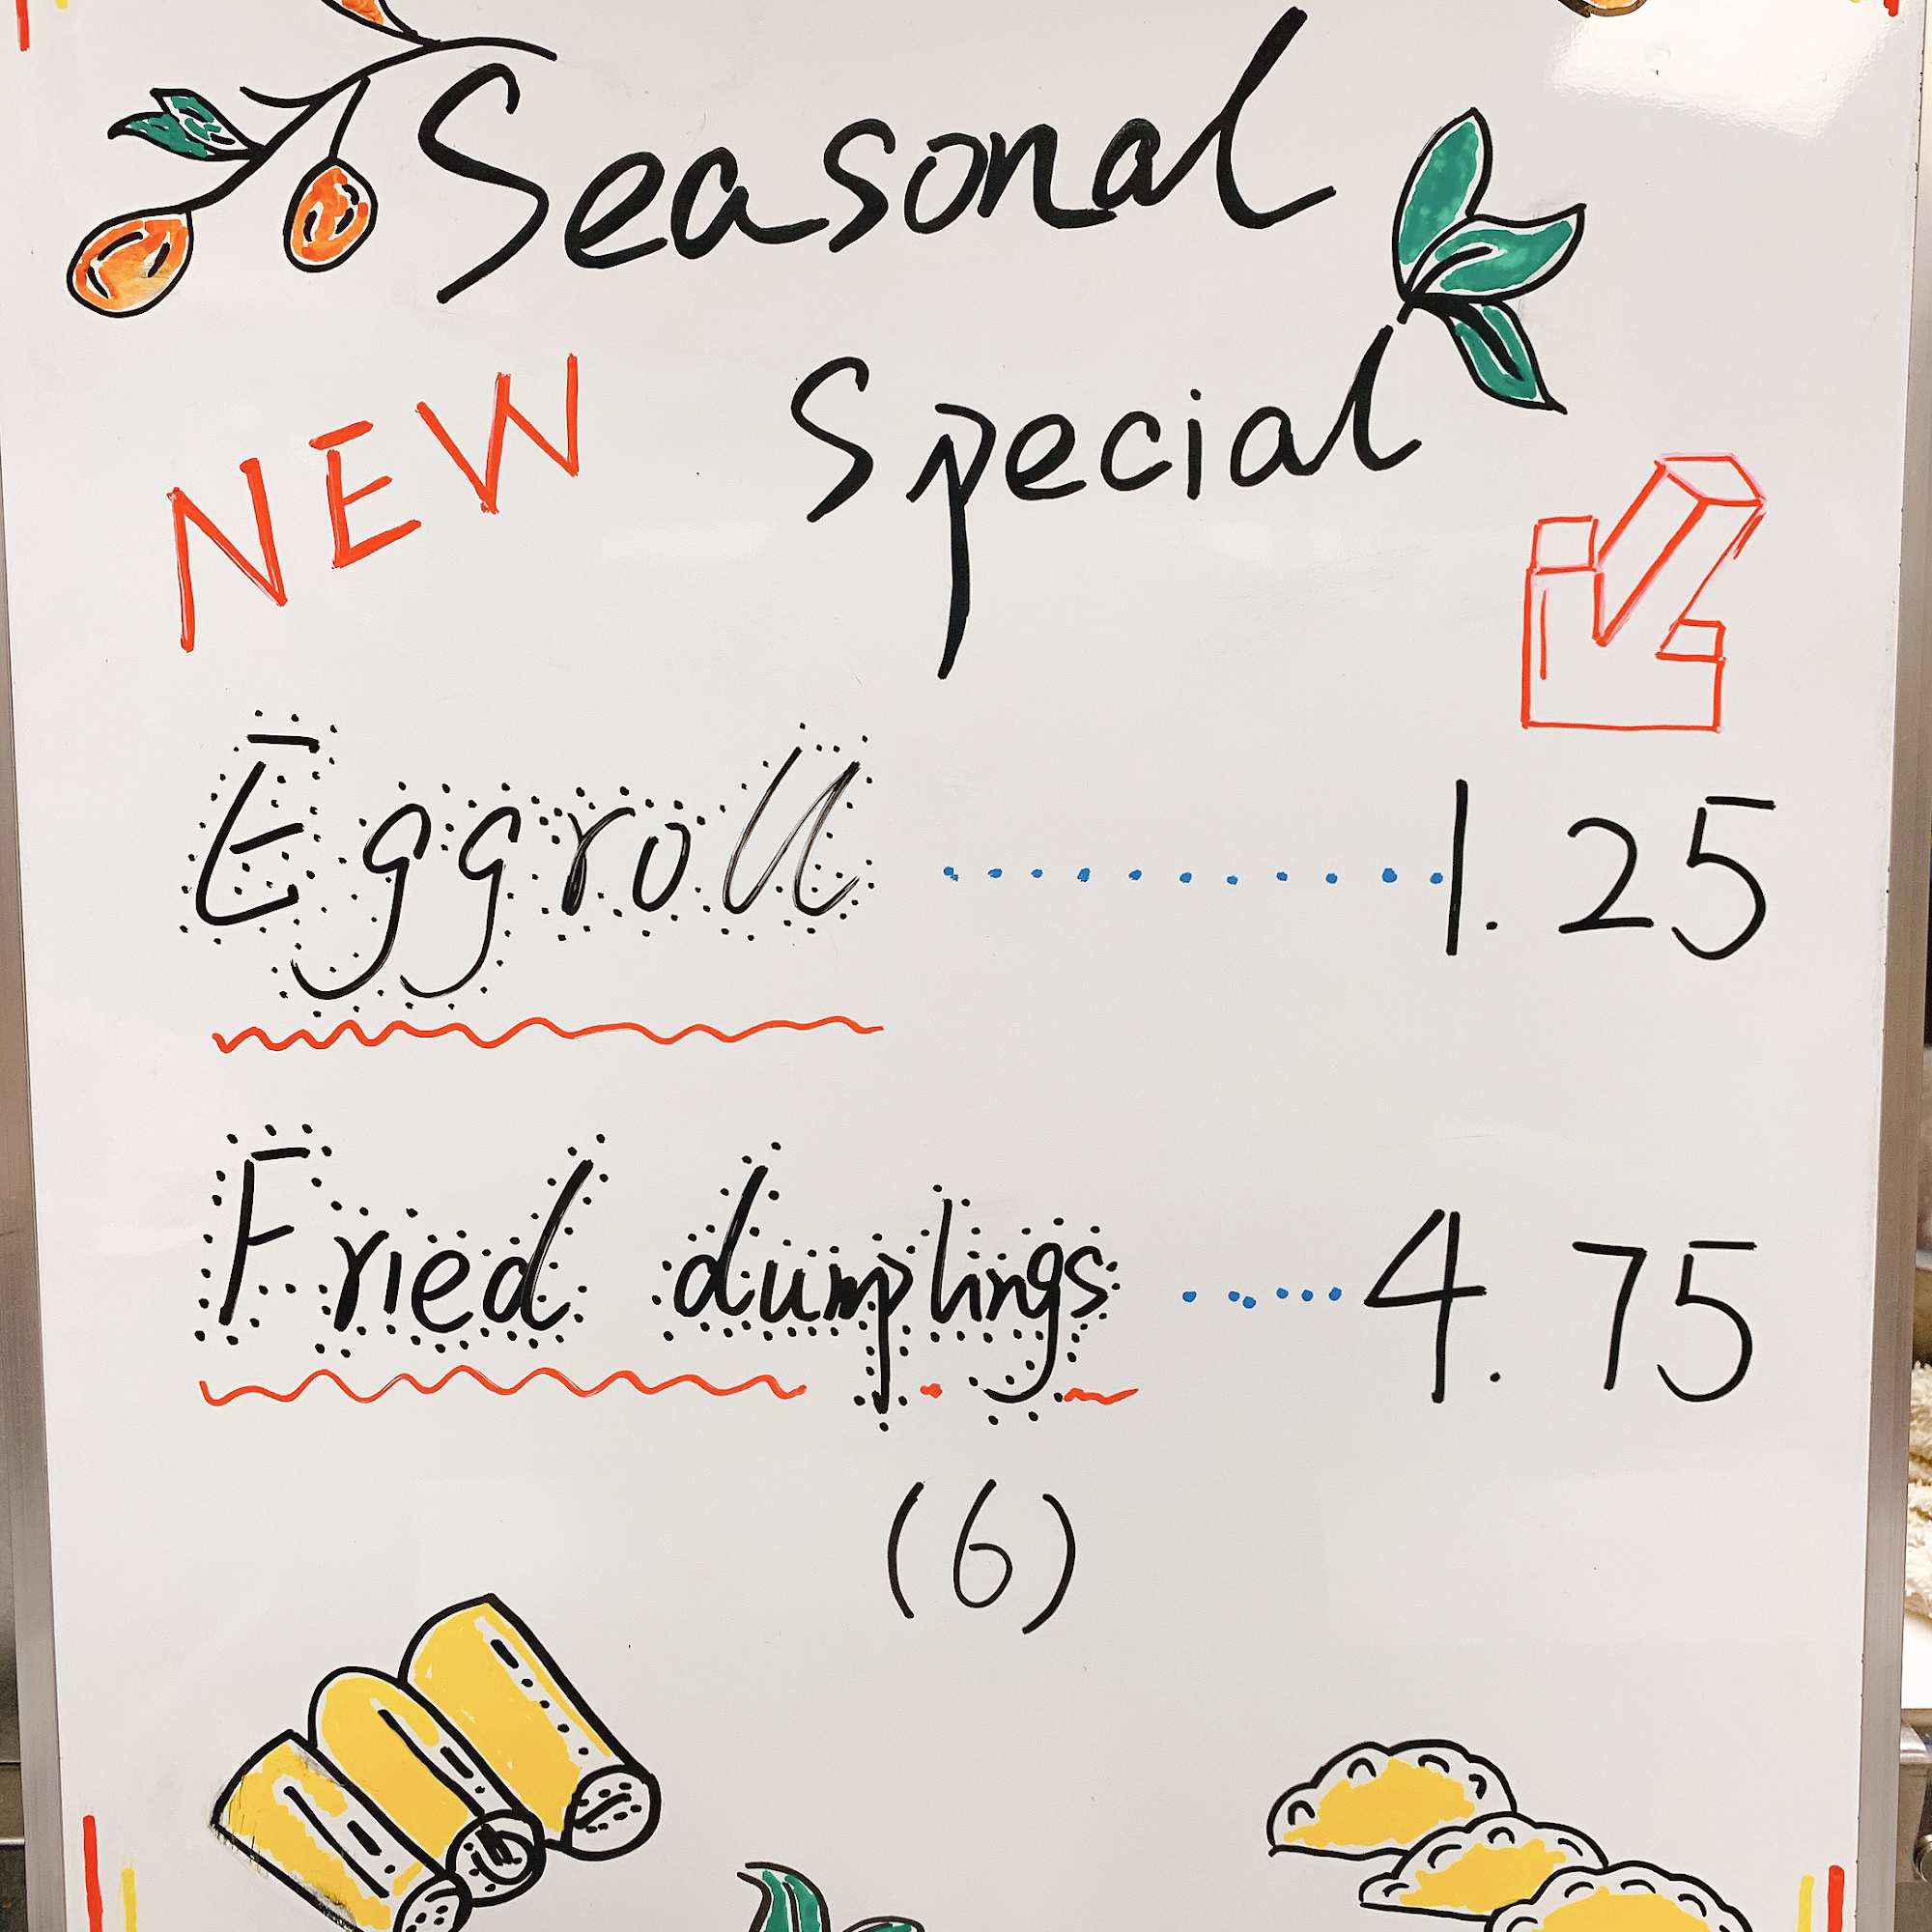 Seasonal
NEW Special
Eggroll ........... 1.25
Fried dumplings ...... 4.75
(6)